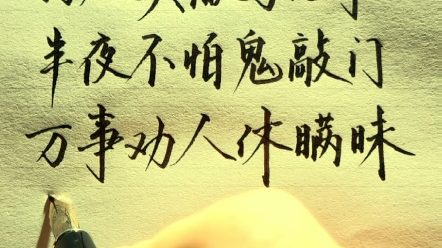 半夜不怕鬼敲门
万事劝人休瞒昧